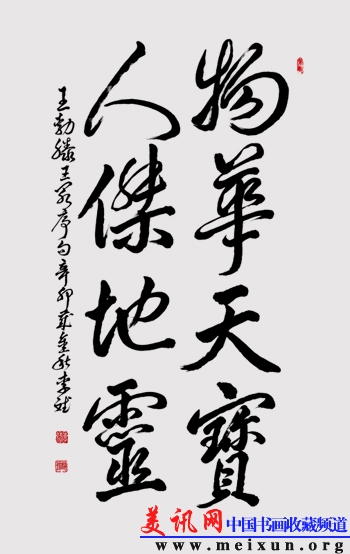 物華天寶
人傑地靈
王勃滕王阁序句辛卯歲金秋李斌
美讯网 中国书画收藏频道
www.meixun.org